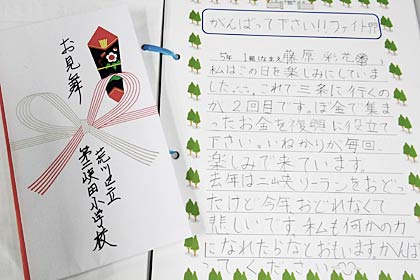 お見舞
荒川区立
第二峡田小学校
がんばって下さい!!ファイト!!
5年 1組(なまえ 藤原 彩花
私はこの日を楽しみにしていま
した...。これで三来に行くの
が2回目です。ぼ金で集まっ
たお金を復興に役立て
下さい。いねかりが毎回、
楽しみで来ています。
去年は二峡ソーランをおどっ
たけど今年おどれなくて
悲しいです。私も何かの力
になれたらなとおもいます。がんば
ってください